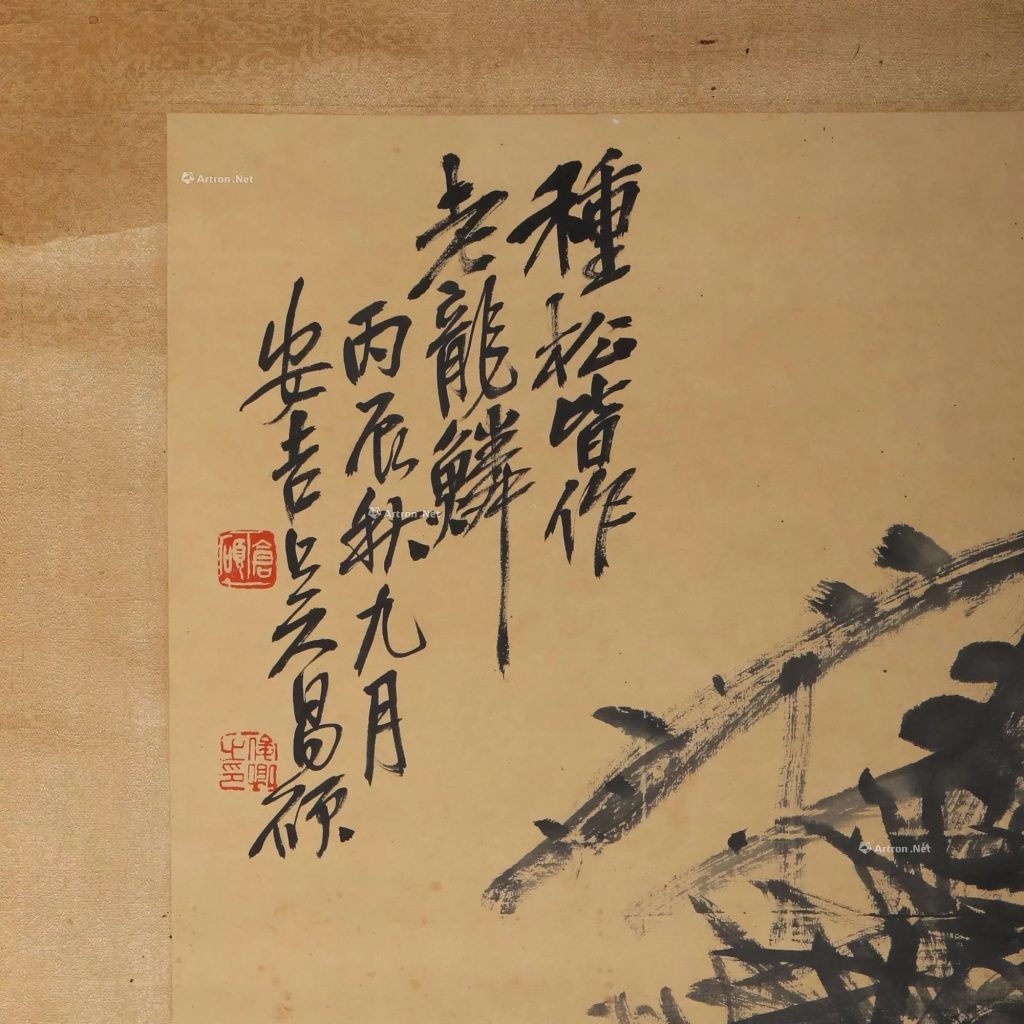 種松皆作
老龍鱗
丙辰秋九月
安吉吳昌碩
倉碩
俊卿之印
Artron.Net
Artron.Net
Artron.Net